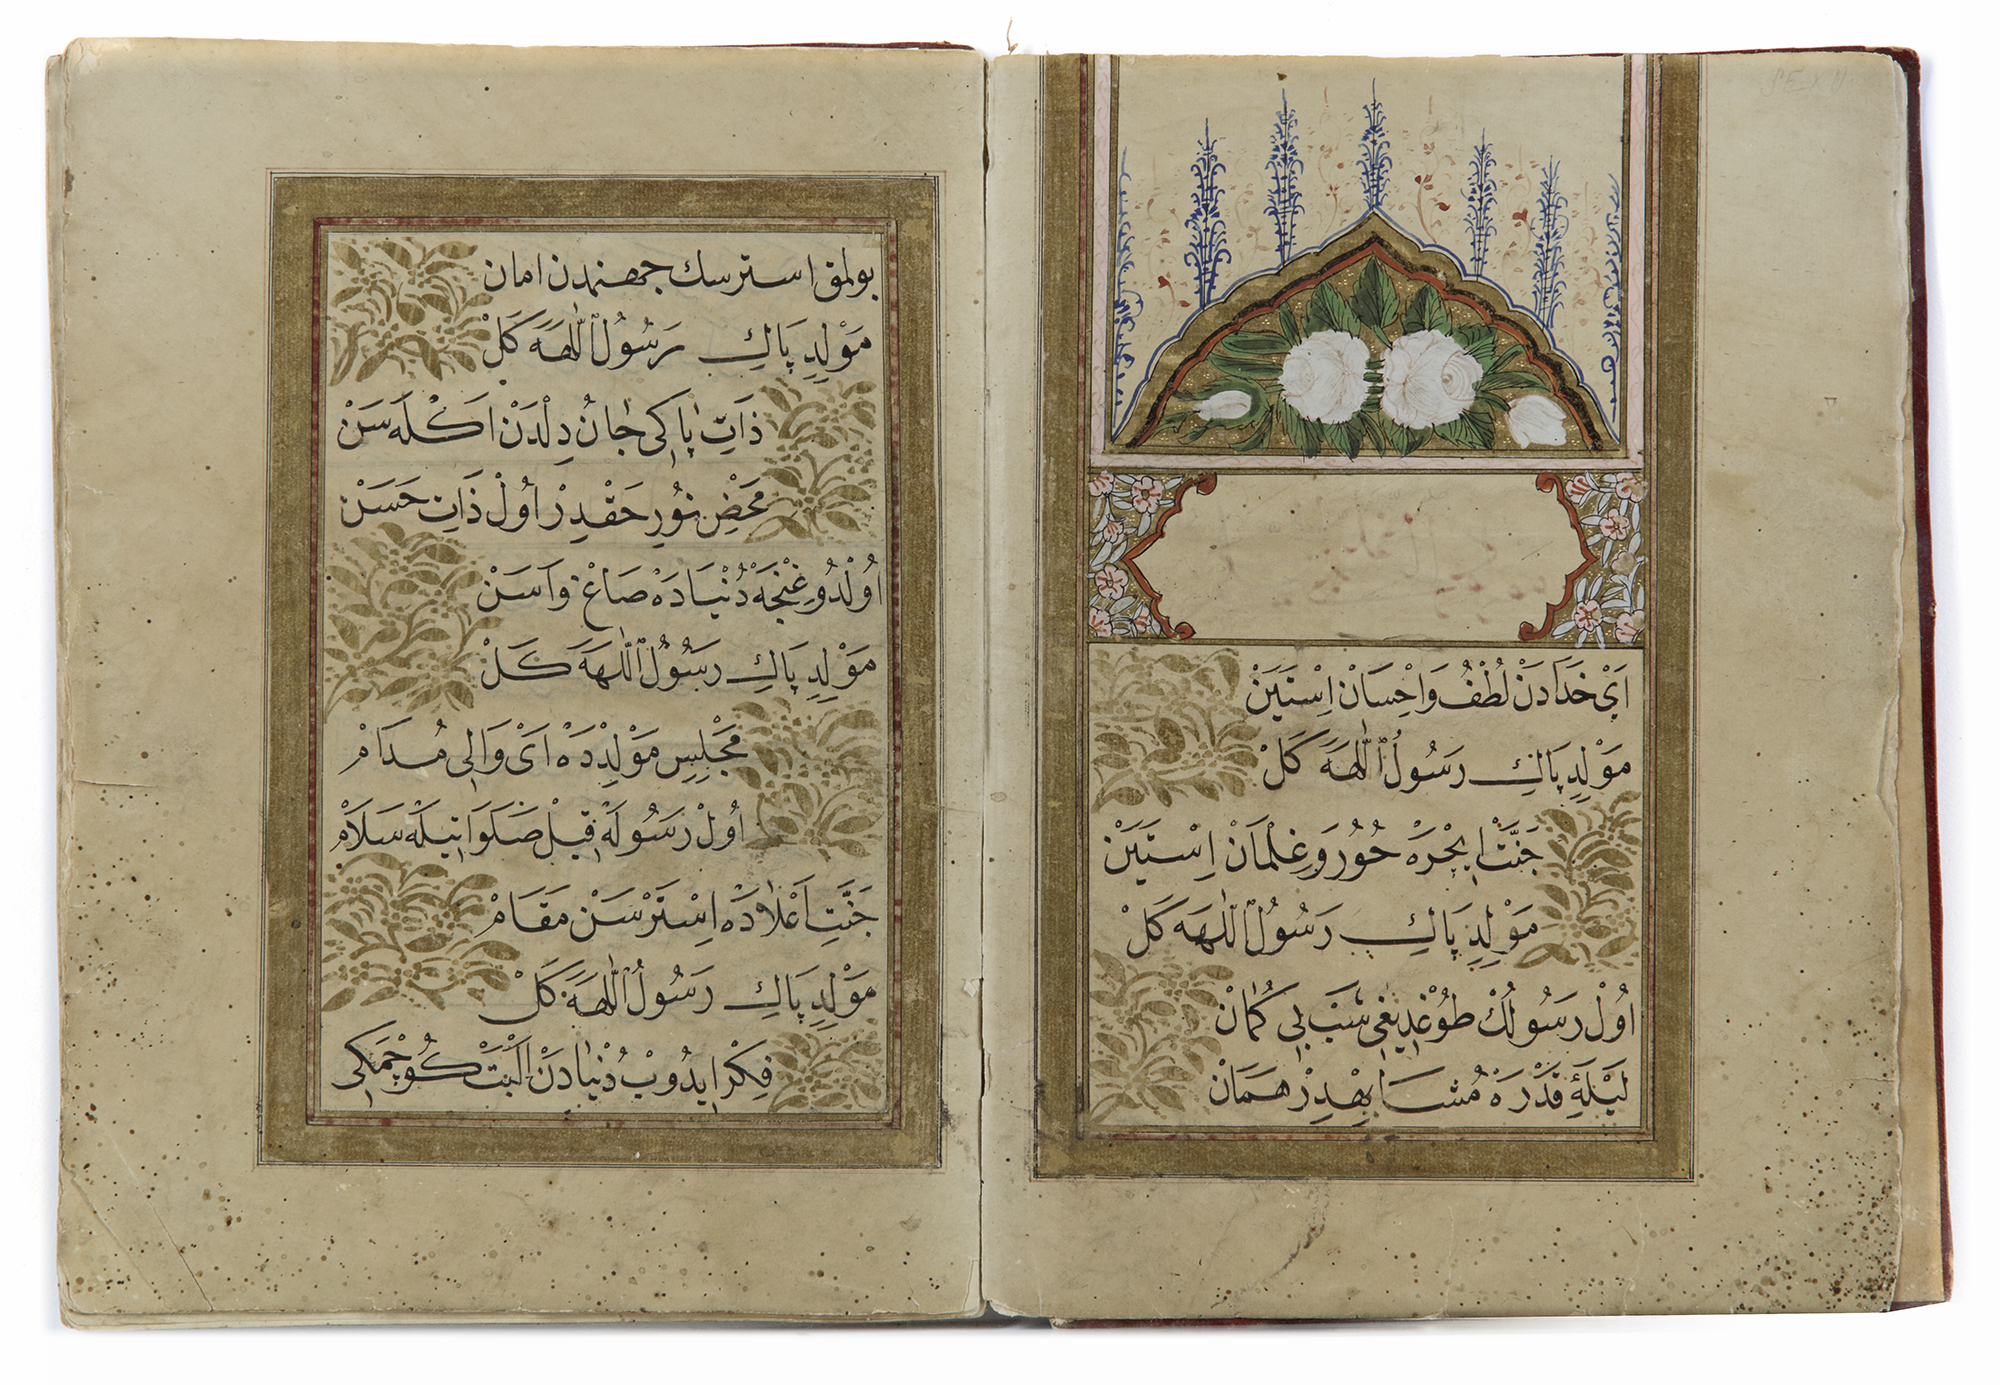 اَيْ خُدَادَنْ لُطْفُ وَاِحْسَانْ اِسْتَيَنْ
مَوْلِدِ پَاكِ رَسُولُ اللّٰهَهْ كَلْ
جَنَّتْ اِيچْرَهْ حُورُ وَغِلْمَانْ اِسْتَيَنْ
مَوْلِدِ پَاكِ رَسُولُ اللّٰهَهْ كَلْ
اُولْ رَسُولُكْ طُوغْدِيغِى شَبْ بِى كُمَانْ
لَيْلَهِٔ قَدْرَهْ مُشَابِهْدِرْ هَمَانْ
بولمق استرسك جهنمدن امان
مَوْلِدِ پَاكِ رَسُولُ اللّٰهَهْ كَلْ
ذَاتِ پَاكِى جَانُ دِلْدَنْ اَكْلَهْ سَنْ
مَحْضِ نُورِ حَقْدِرْ اُولْ ذَاتِ حَسَنْ
اُولْدُوغِنْجَهْ دُنْيَادَهْ صَاغْ وَاَسَنْ
مَوْلِدِ پَاكِ رَسُولُ اللّٰهَهْ كَلْ
مَجْلِسِ مَوْلِدْدَهْ اَىْ وَالِى مُدَامْ
اُولْ رَسُولَهْ قِيلْ صَلَوَاتِيلَهْ سَلَامْ
جَنَّتِ اَعْلَادَهْ اِسْتَرْسَنْ مَقَامْ
مَوْلِدِ پَاكِ رَسُولُ اللّٰهَهْ كَلْ
فِكْرْ اِيدُوبْ دُنْيَادَنْ اَلْبَتْ كُوچْمَكِى